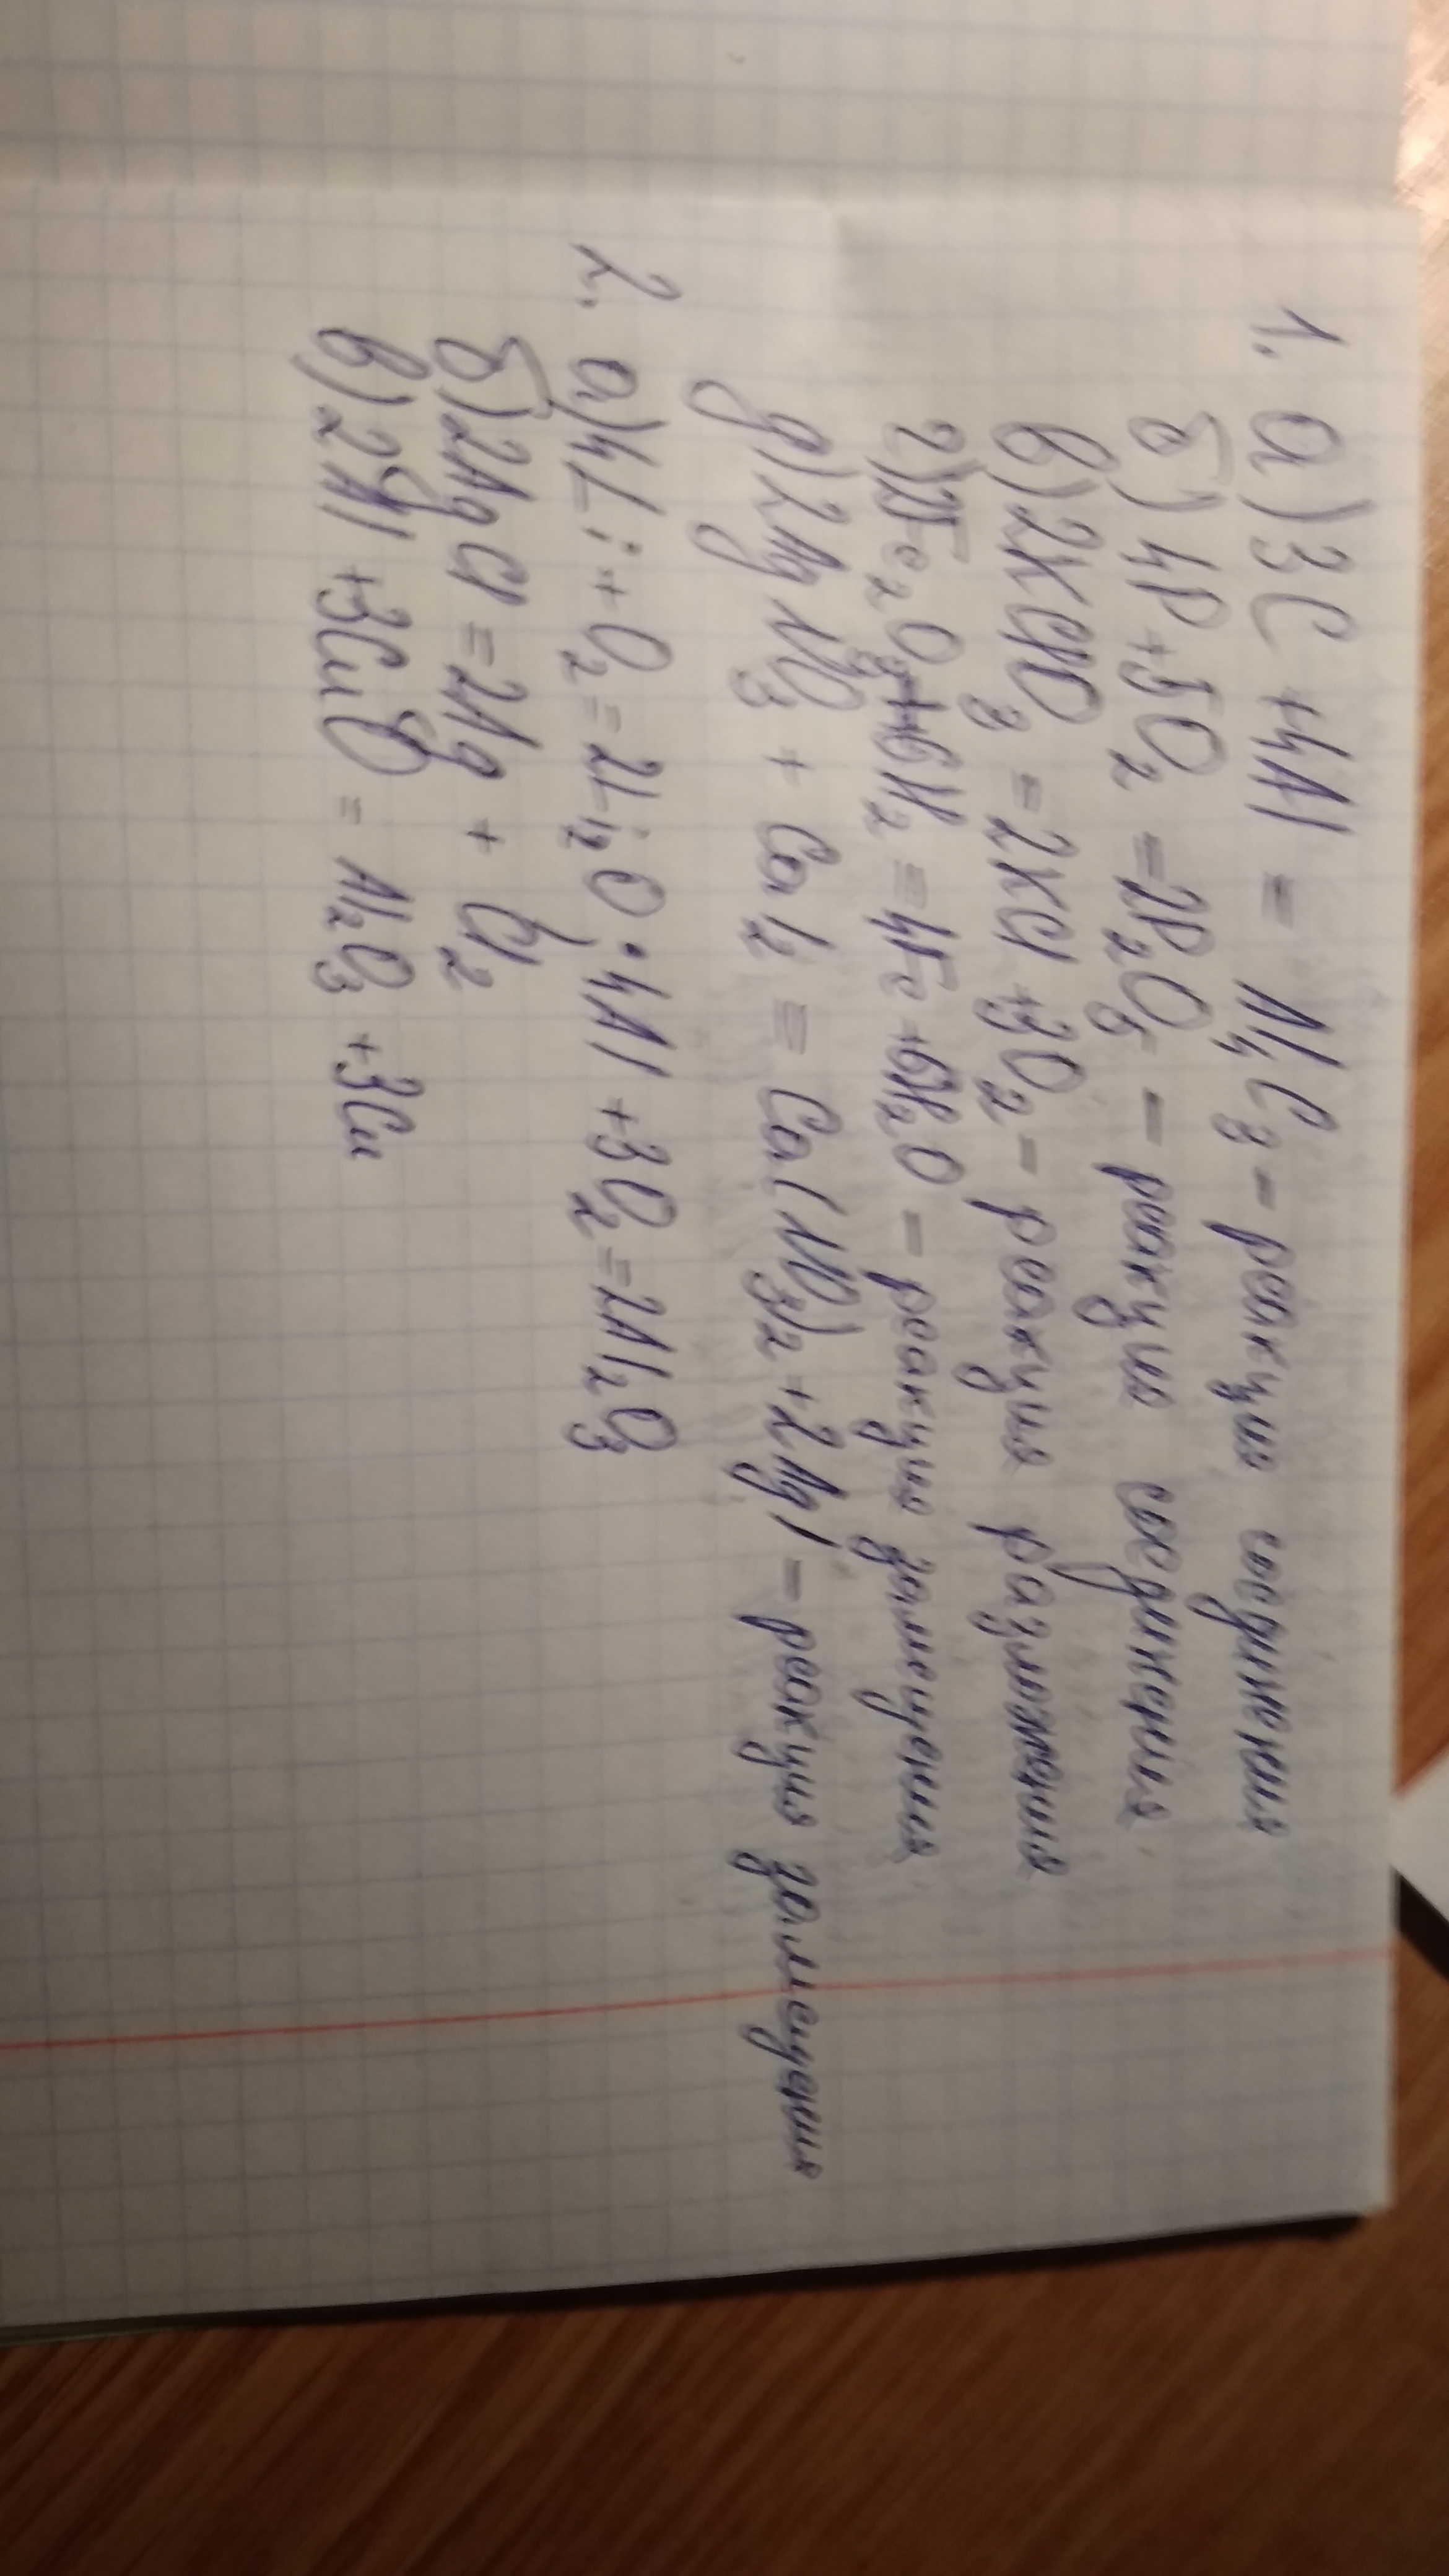 1. а) 3C + 4Al = Al₄C₃ – реакция соединения
б) 4P + 5O₂ = 2P₂O₅ – реакция соединения
в) 2KClO₃ = 2KCl + 3O₂ – реакция разложения
г) 2Fe₂O₃ + 6H₂ = 4Fe + 6H₂O – реакция замещения
д) 2AgNO₃ + CaI₂ = Ca(NO₃)₂ + 2AgI – реакция замещения
2. а) 4Li + O₂ = 2Li₂O; 4Al + 3O₂ = 2Al₂O₃
б) 2AgCl = 2Ag + Cl₂
в) 2Al + 3CuO = Al₂O₃ + 3Cu